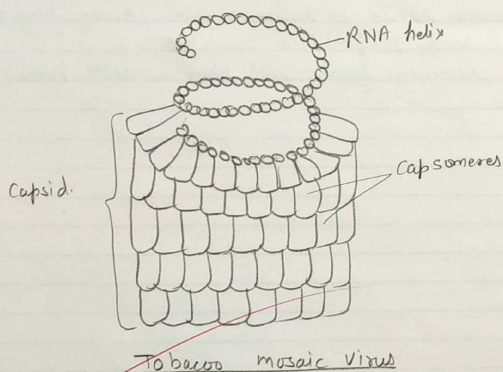 RNA helix
Capsomeres
Capsid.
Tobacoo mosaic virus